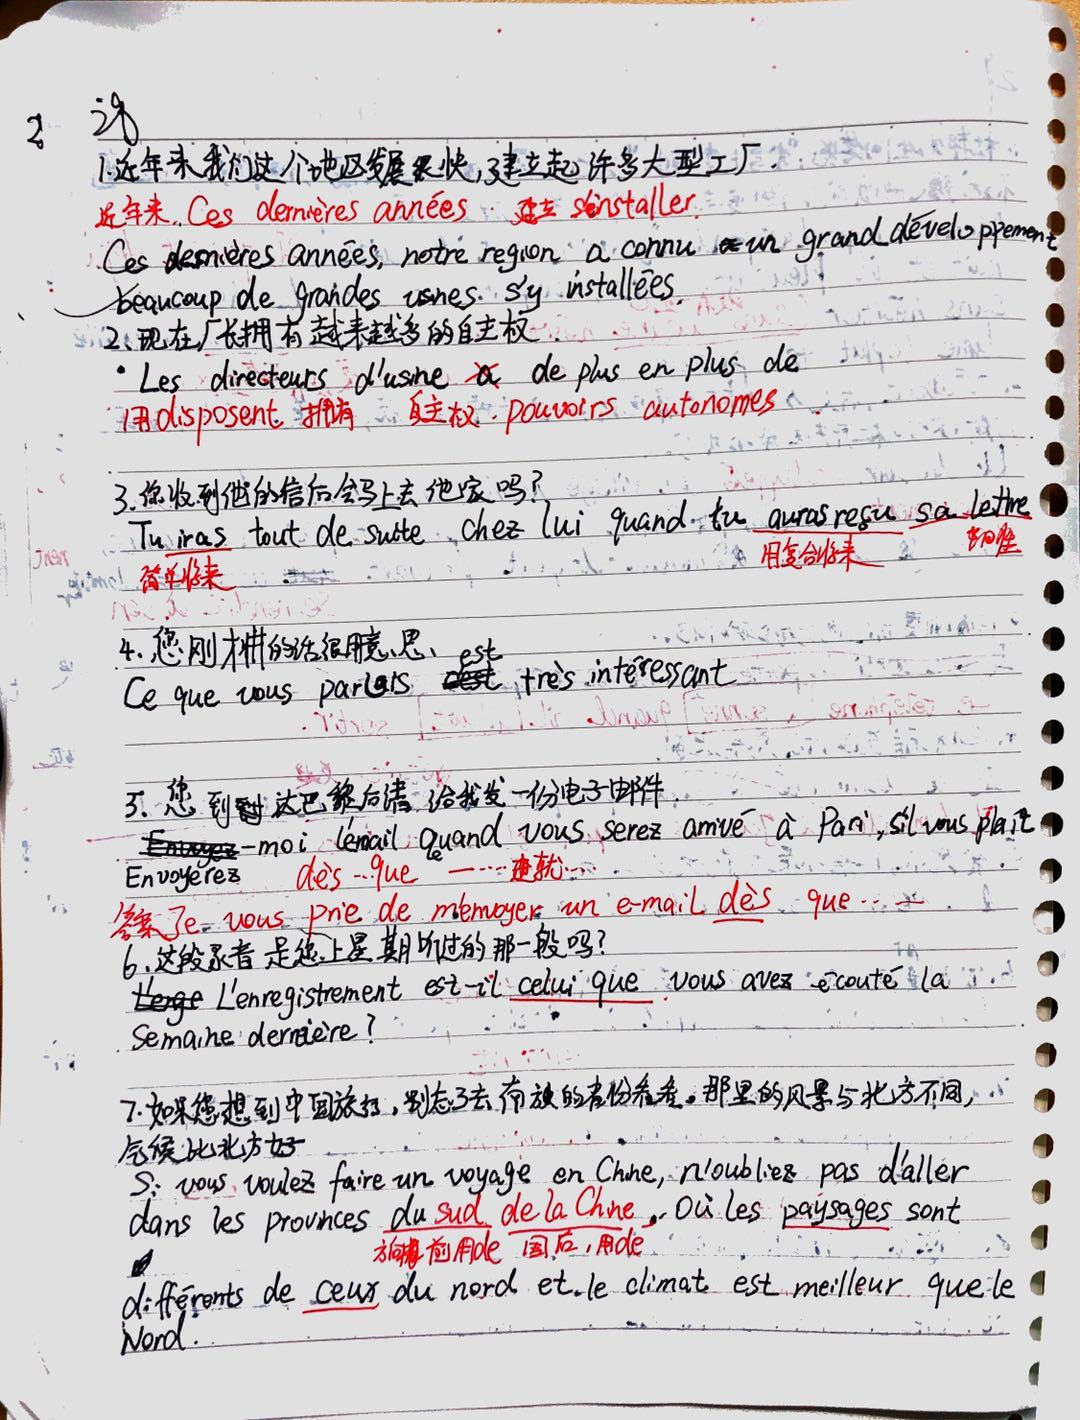 2 译
1.近年来我们这个地区发展很快,建立起许多大型工厂.
近年来.Ces dernières années. 建立 s'installer.
Ces dernières années, notre region a connu un grand développement
beaucoup de grandes usines. s'y installées.
2.现在厂长拥有越来越多的自主权.
Les directeurs d'usine a de plus en plus de
用disposent 拥有 自主权. pouvoirs autonomes
3.你收到他的信后会马上去他家吗?
Tu iras tout de suite chez lui quand tu auras reçu sa lettre
简单将来 用复合将来
4.您刚才讲的话很用意思.
est
Ce que vous parlais c'est très intéressant
5.您到达巴黎后请给我发一份电子邮件
Envoyez-moi l'émail quand vous serez arrivé à Pari, s'il vous plaît
Envoyerez dès que 一……就…
答案 Je vous prie de m'envoyer un e-mail dès que……
6.这段录音是您上星期听过的那一般吗?
L'enregistrement est-il celui que vous avez écouté la
semaine dernière?
7.如果您想到中国旅行,别忘了去南放的省份看看。那里的风景与北方不同,
气候比北方好
Si vous voulez faire un voyage en Chine, n'oubliez pas d'aller
dans les provinces du sud de la Chine. Où les paysages sont
前用de 国后,用de
différents de ceux du nord et le climat est meilleur que le
Nord.